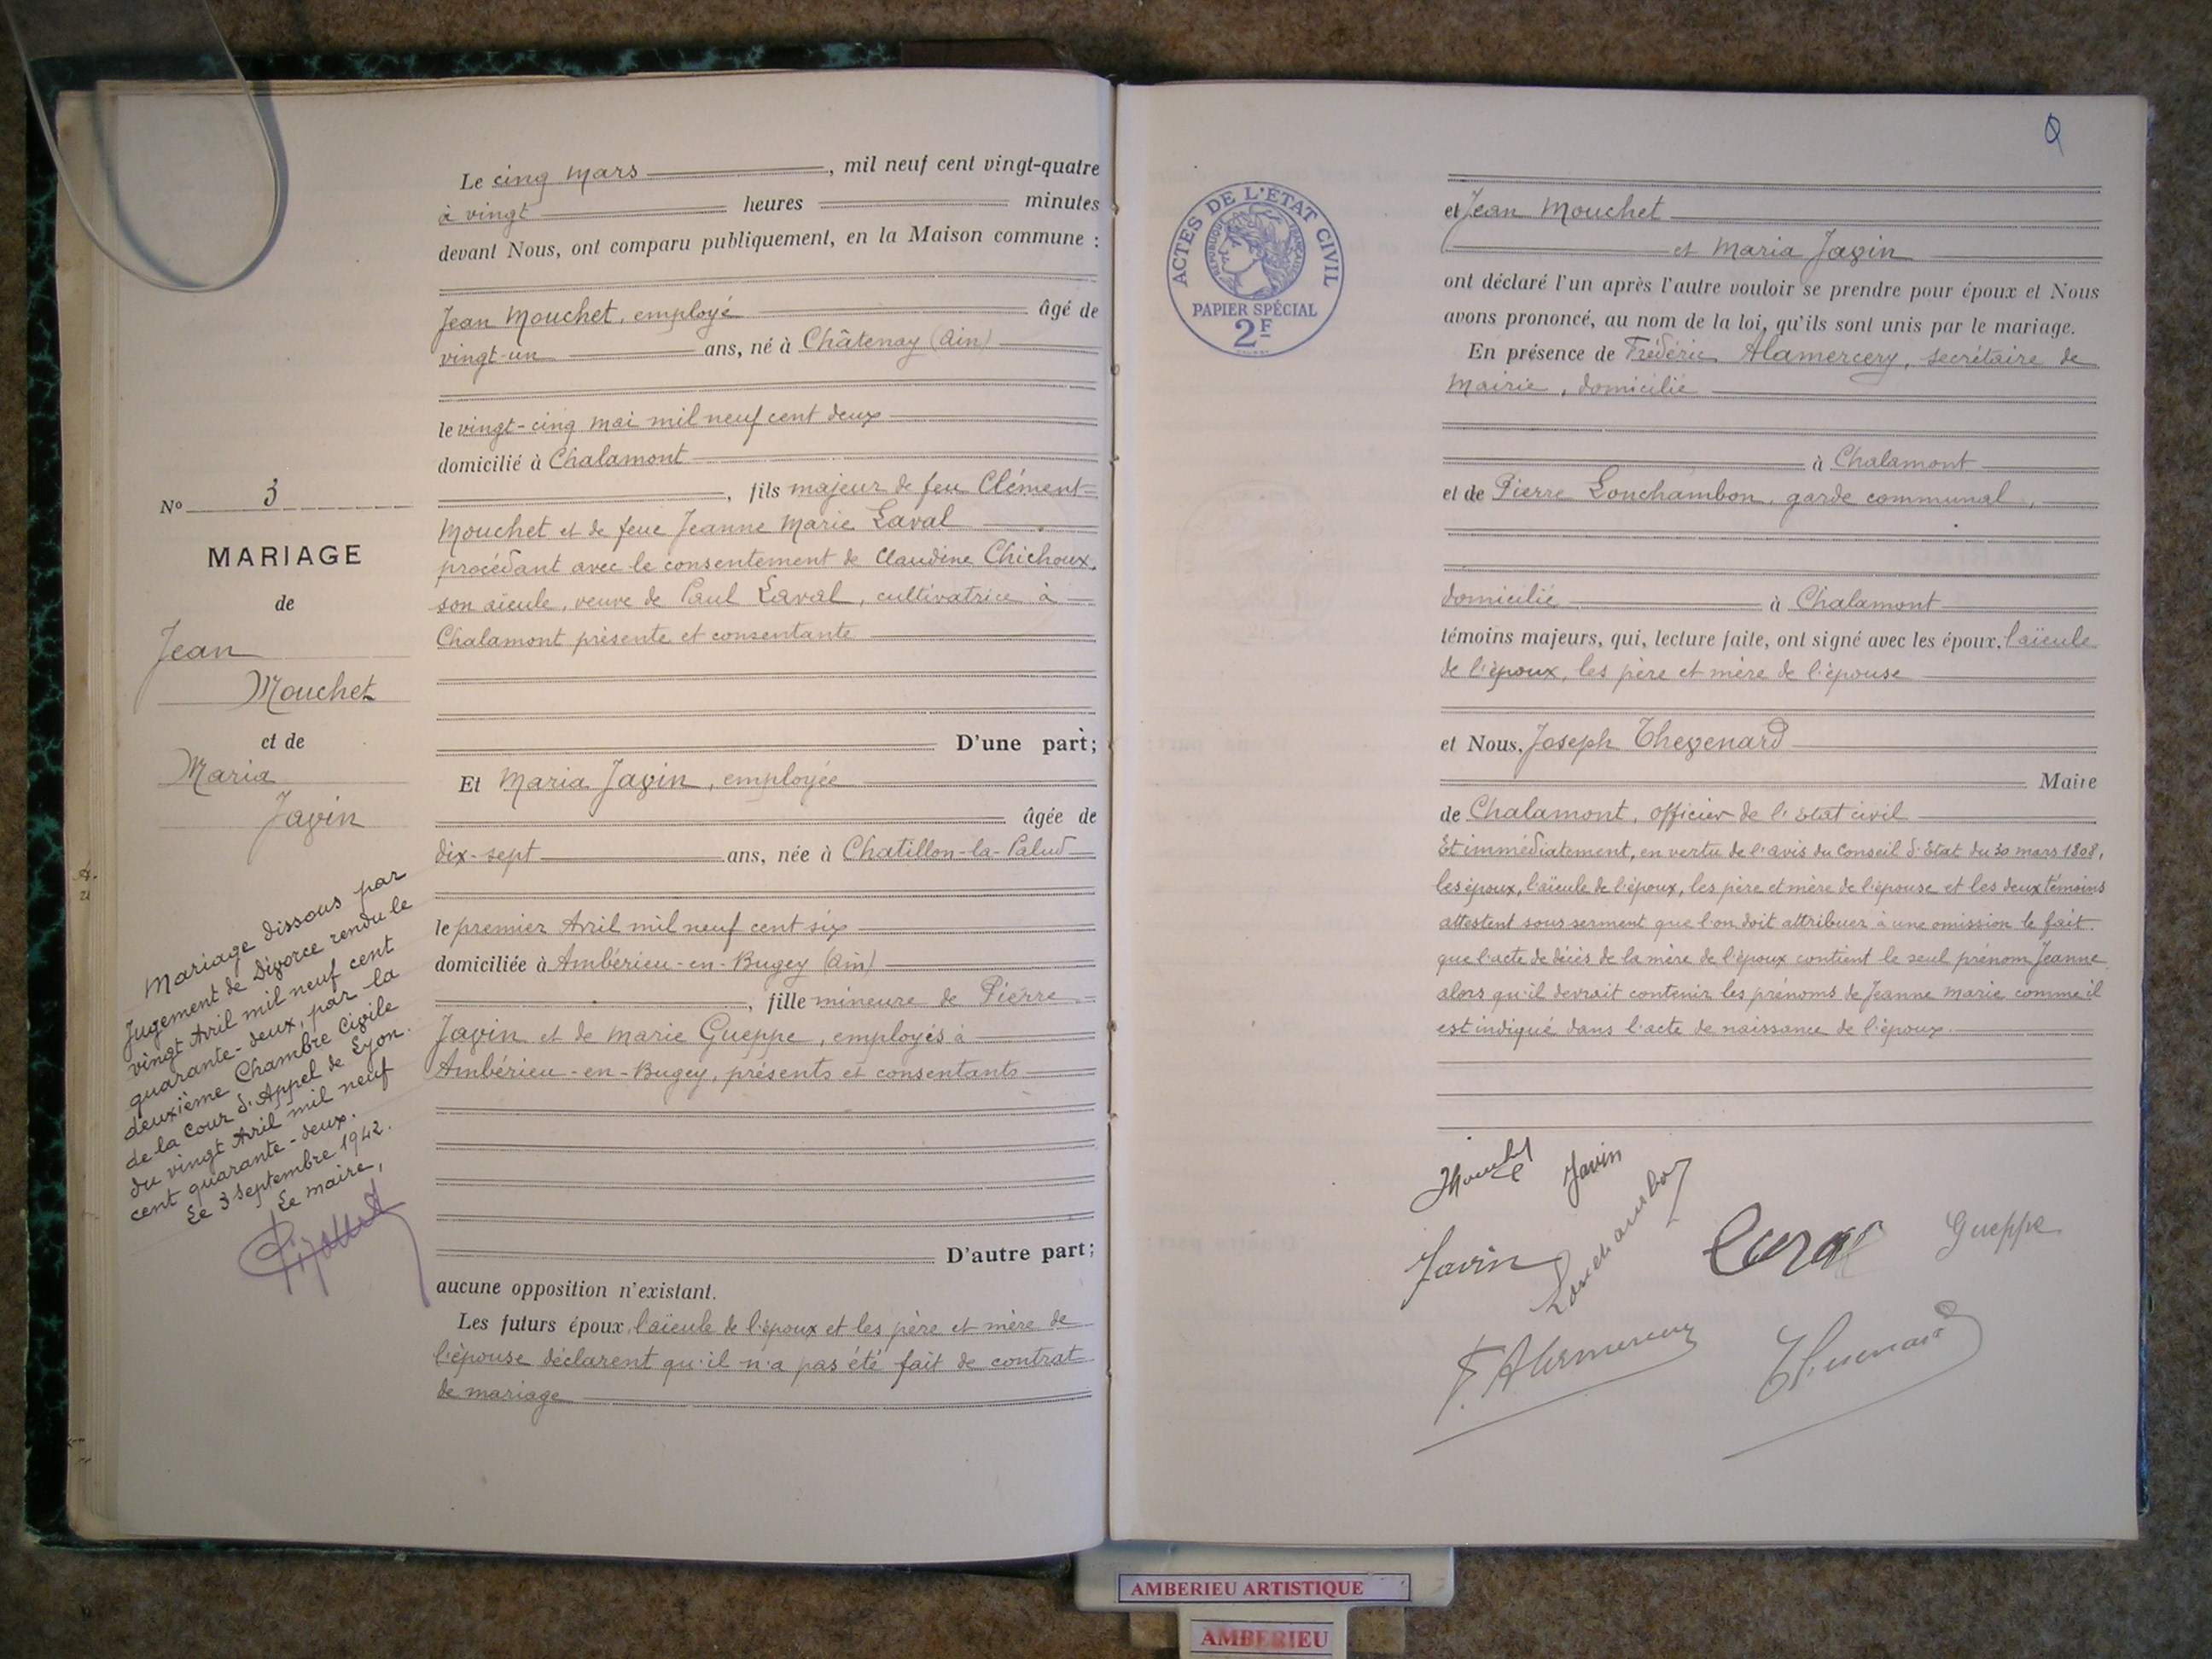 Le cinq Mars, mil neuf cent vingt-quatre
à vingt heures minutes
devant Nous, ont comparu publiquement, en la Maison commune :
Jean Mouchet, employé âgé de
vingt-un ans, né à Châtenay (Ain)
le vingt-cinq mai mil neuf cent deux
domicilié à Chalamont
, fils majeur de feu Clément
Mouchet et de feue Jeanne Marie Laval
procédant avec le consentement de Claudine Chichoux,
son aïeule, veuve de Paul Laval, cultivatrice à
Chalamont présente et consentante
D'une part;
Et Maria Javin, employée
âgée de
dix-sept ans, née à Chatillon-la-Palud
le premier Avril mil neuf cent six
domiciliée à Ambérieu-en-Bugey (Ain)
, fille mineure de Pierre
Javin et de Marie Gueppe, employés à
Ambérieu-en-Bugey, présents et consentants
D'autre part;
aucune opposition n'existant.
Les futurs époux, l'aïeule de l'époux et les père et mère de
l'épouse déclarent qu'il n'a pas été fait de contrat
de mariage
No 3
MARIAGE
de
Jean
Mouchet
et de
Maria
Javin
Mariage dissous par
Jugement de Divorce rendu le
vingt Avril mil neuf cent
quarante-deux, par la
deuxième Chambre Civile
de la Cour d'Appel de Lyon.
du vingt Avril mil neuf
cent quarante-deux.
Le 3 Septembre 1942.
Le maire,
ACTES DE L'ÉTAT CIVIL
RÉPUBLIQUE FRANÇAISE
PAPIER SPÉCIAL
2F
et Jean Mouchet
et Maria Javin
ont déclaré l'un après l'autre vouloir se prendre pour époux et Nous
avons prononcé, au nom de la loi, qu'ils sont unis par le mariage.
En présence de Frédéric Alamercery, secrétaire de
Mairie, domicilié
à Chalamont
et de Pierre Louchambon, garde communal,
domicilié à Chalamont
témoins majeurs, qui, lecture faite, ont signé avec les époux, l'aïeule
de l'époux, les père et mère de l'épouse
et Nous, Joseph Thevenard
Maire
de Chalamont, officier de l'Etat civil
Et immédiatement, en vertu de l'avis du Conseil d'Etat du 30 mars 1808,
les époux, l'aïeule de l'époux, les père et mère de l'épouse et les deux témoins
attestent sous serment que l'on doit attribuer à une omission le fait
que l'acte de décès de la mère de l'époux contient le seul prénom Jeanne
alors qu'il devrait contenir les prénoms de Jeanne Marie comme il
est indiqué dans l'acte de naissance de l'époux.
Mouchet Javin
Javin Louchambon Laval Gueppe
F. Alamercery Thevenard
AMBERIEU ARTISTIQUE
AMBERIEU